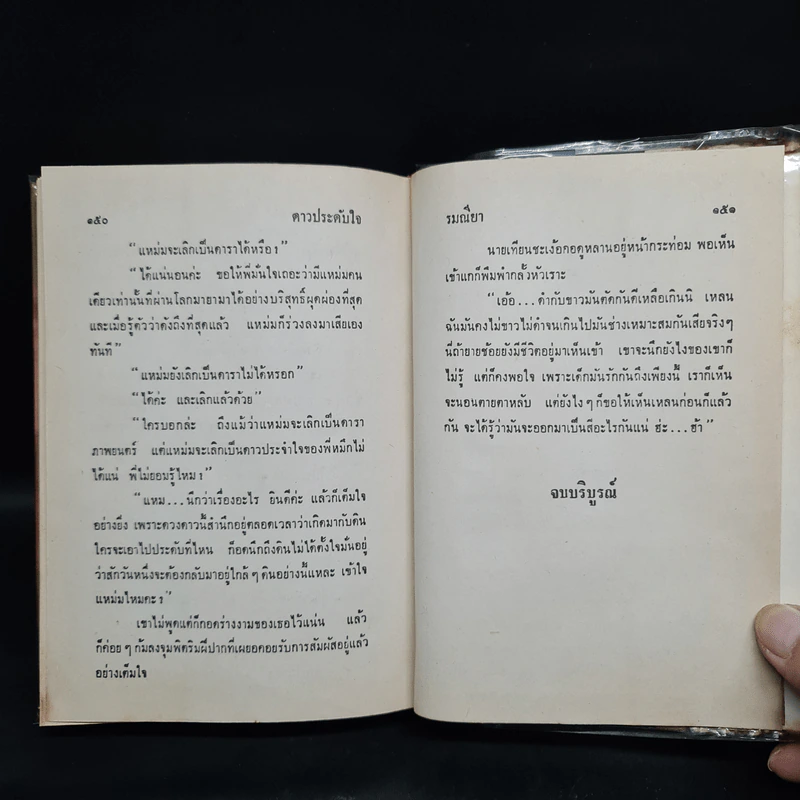 ๑๕๐
ดาวประดับใจ
“แหม่มจะเลิกเป็นดาราได้หรือ?”
“ได้แน่นอนค่ะ ขอให้พี่มั่นใจเถอะว่ามีแหม่มคน
เดียวเท่านั้นที่ผ่านโลกมายามาได้อย่างบริสุทธิ์ผุดผ่องที่สุด
และเมื่อรู้ตัวว่าดังถึงที่สุดแล้ว แหม่มก็ร่วงลงมาเสียเอง
ทันที”
“แหม่มยังเลิกเป็นดาราไม่ได้หรอก”
“ได้ค่ะ และเลิกแล้วด้วย”
“ใครบอกล่ะ ถึงแม้ว่าแหม่มจะเลิกเป็นดารา
ภาพยนตร์ แต่แหม่มจะเลิกเป็นดาวประจำใจของพี่หมึกไม่
ได้แน่ พี่ไม่ยอมรู้ไหม?”
“แหม...นึกว่าเรื่องอะไร ยินดีค่ะ แล้วก็เต็มใจ
อย่างยิ่ง เพราะดวงดาวนี้สำนึกอยู่ตลอดเวลาว่าเกิดมากับดิน
ใครจะเอาไปประดับที่ไหน ก็อดนึกถึงดินไม่ได้ตั้งใจมั่นอยู่
ว่าสักวันหนึ่งจะต้องกลับมาอยู่ใกล้ ๆ ดินอย่างนี้แหละ เข้าใจ
แหม่มไหมคะ?”
เขาไม่พูดแต่ก็กอดร่างงามของเธอไว้แน่น แล้ว
ก็ค่อย ๆ ก้มลงจุมพิตริมฝีปากที่เผยอคอยรับการสัมผัสอยู่แล้ว
อย่างเต็มใจ
รมณียา
๑๕๑
นายเทียนชะเง้อคอดูหลานอยู่หน้ากระท่อม พอเห็น
เข้าแกก็พึมพำกลั้วหัวเราะ
“เอ้อ...ดำกับขาวมันตัดกันดีเหลือเกินนิ เหลน
ฉันมันคงไม่ขาวไม่ดำจนเกินไปมันช่างเหมาะสมกันเสียจริงๆ
นี่ถ้ายายช้อยยังมีชีวิตอยู่มาเห็นเข้า เขาจะนึกยังไงของเขาก็
ไม่รู้ แต่ก็คงพอใจ เพราะเด็กมันรักกันถึงเพียงนี้ เราก็เห็น
จะนอนตายตาหลับ แต่ยังไง ๆ ก็ขอให้เห็นเหลนก่อนก็แล้ว
กัน จะได้รู้ว่ามันจะออกมาเป็นสีอะไรกันแน่ ฮ่ะ...ฮ้า”
จบบริบูรณ์